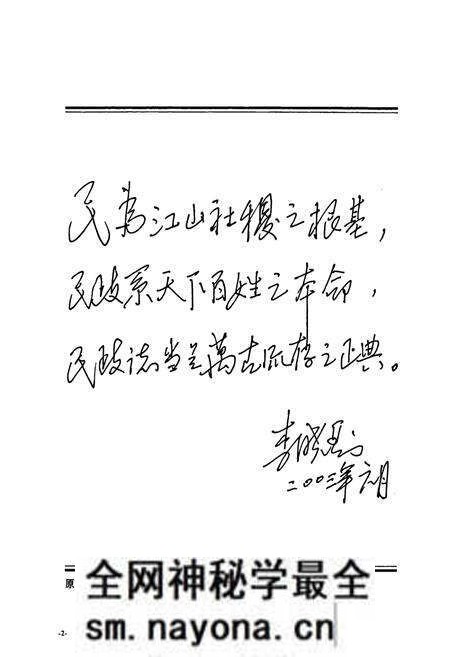 民为江山社稷之根基，
民政系天下百姓之本命，
民政志当是萬古流存之正典。
李
二00三年六月
原
全网神秘学最全
-2-
sm.nayona.cn